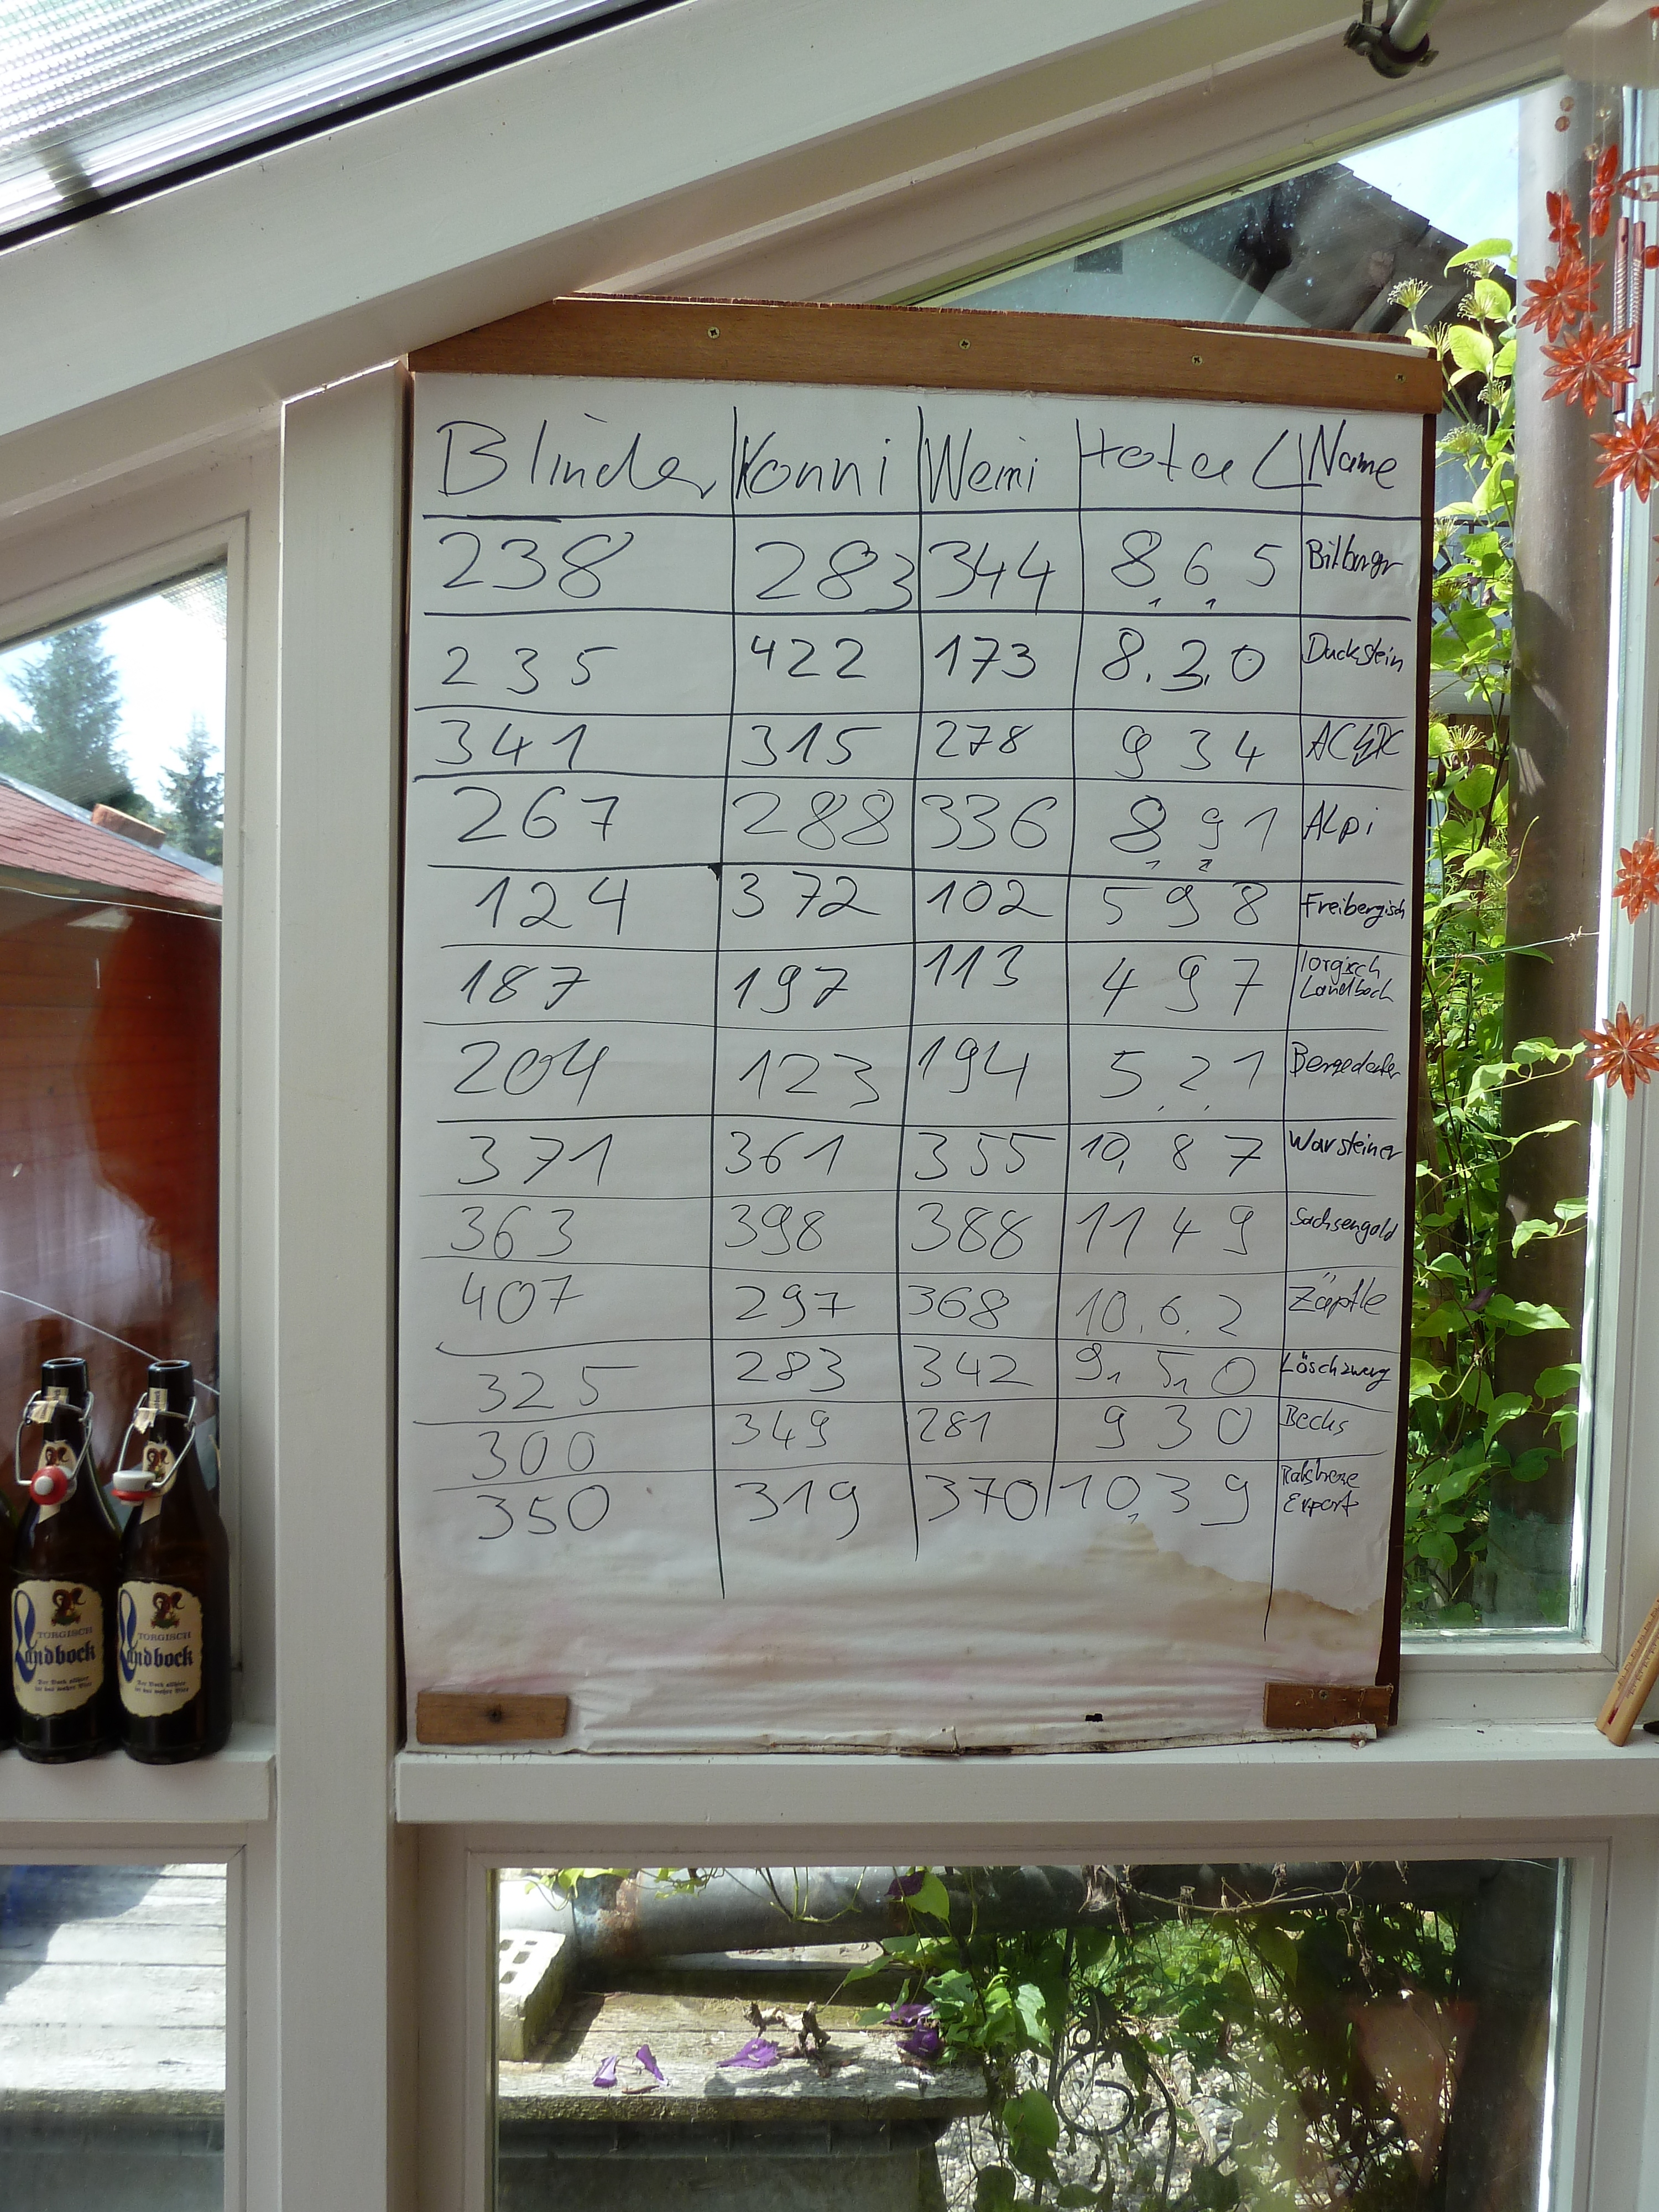 Blinder Konni Weini total Name
238 283 344 865 Bitburger
235 422 173 830 Duckstein
341 315 278 934 AC⚡DC
267 288 336 891 Alpi
124 372 102 598 Freibergisch
187 197 113 497 Torgisch
Landbock
204 123 194 521 Bergedorfer
371 361 355 10,87 Warsteiner
363 398 388 1149 Sachsengold
407 297 368 1062 Zäpfle
325 283 342 950 Löschzwerg
300 349 281 930 Becks
350 319 370 1039
Export
TORGISCH
Landbock
Der Bock allhier
ist das wahre Bier
TORGISCH
Landbock
Der Bock allhier
ist das wahre Bier